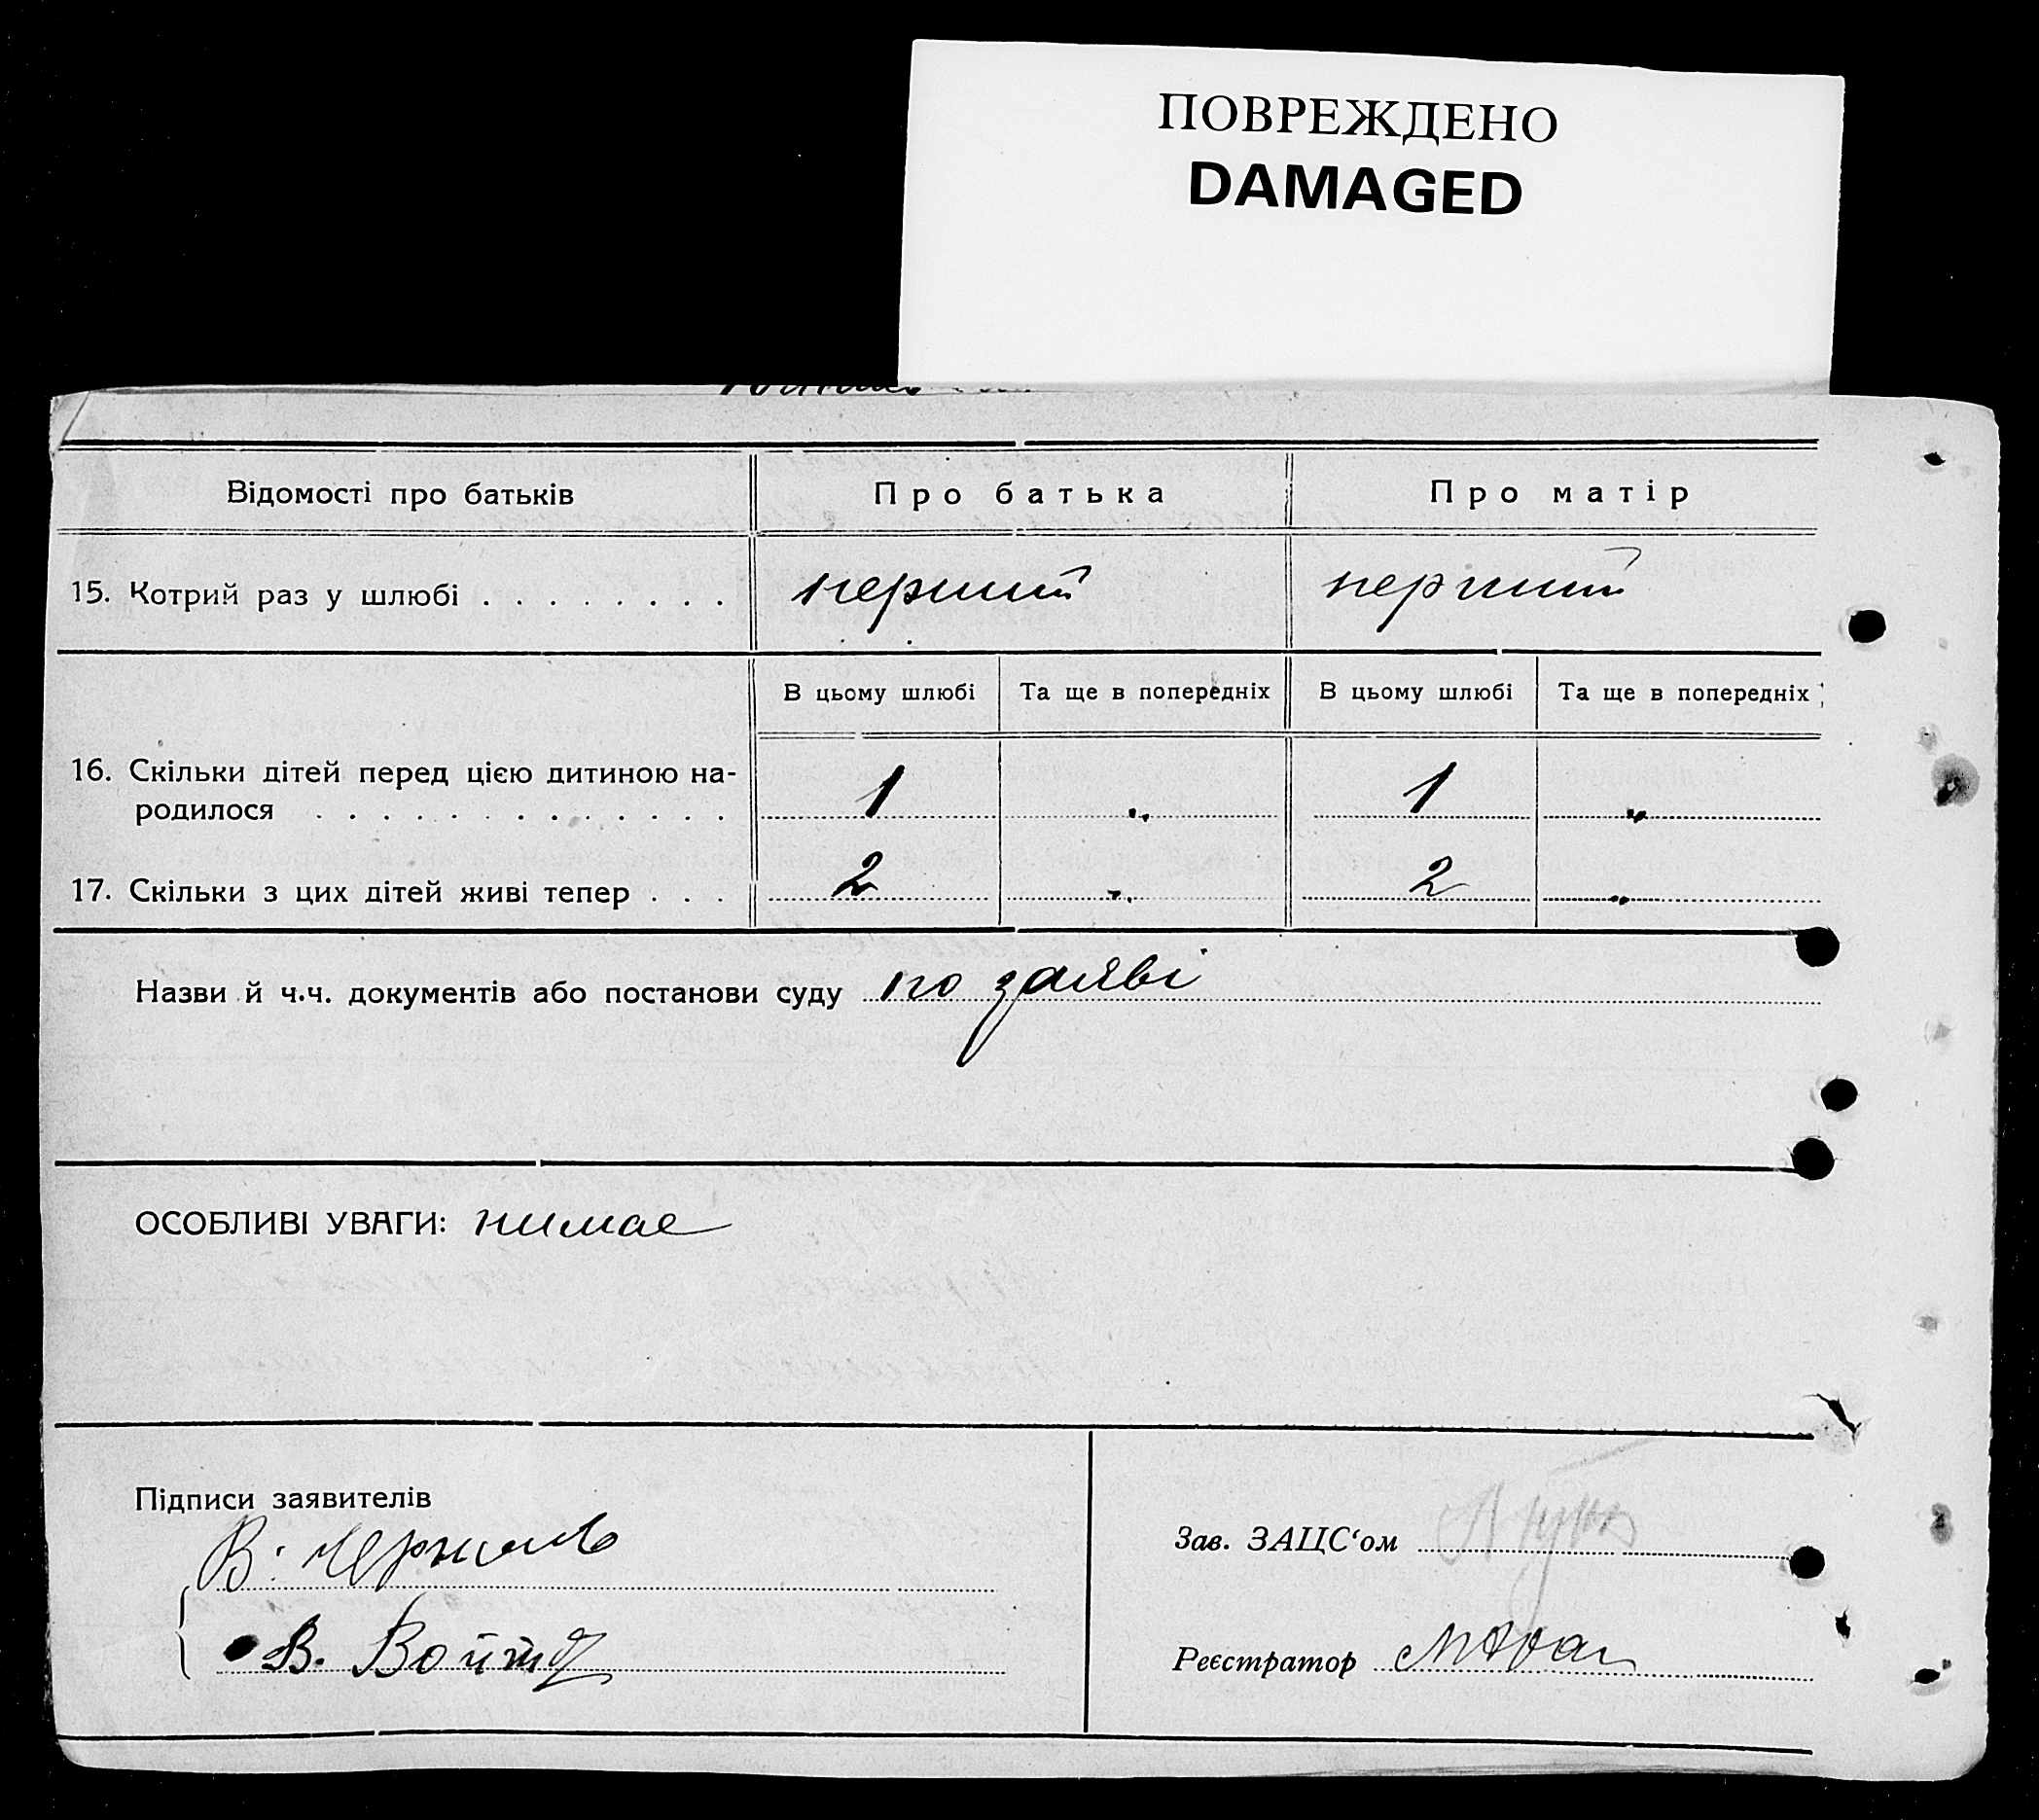 ПОВРЕЖДЕНО
DAMAGED
Відомості про батьків
Про батька
Про матір
15. Котрий раз у шлюбі . . . . . . . .
перший
перший
В цьому шлюбі
Та ще в попередніх
В цьому шлюбі
Та ще в попередніх
16. Скільки дітей перед цією дитиною на-
родилося . . . . . . . . . . . . .
1
„
1
„
17. Скільки з цих дітей живі тепер . . .
2
„
2
„
Назви й ч.ч. документів або постанови суду по заяві
ОСОБЛИВІ УВАГИ: нимае
Підписи заявителів
В.
В. Войт
Зав. ЗАЦС‘ом
Реєстратор